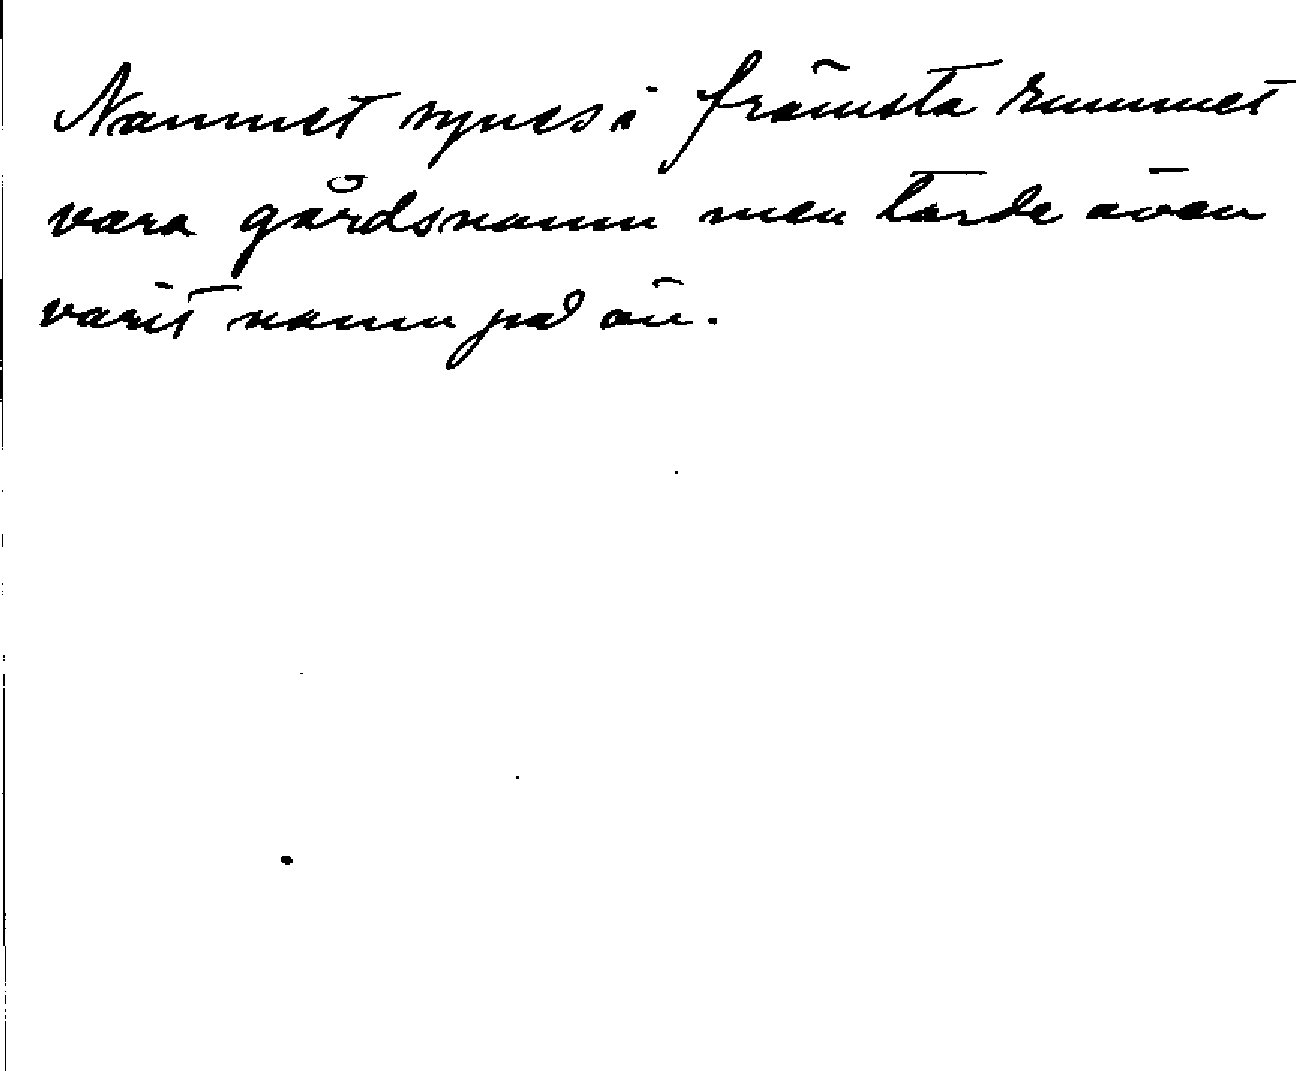 Namnet synes i främsta rummet
vara gårdsnamn men torde även
varit namn på ön.